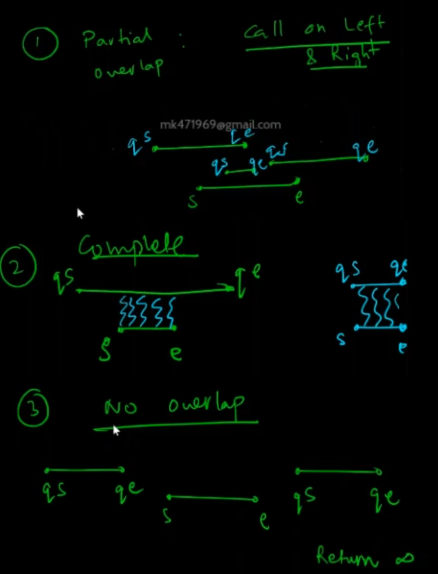 ① Partial : Call on Left
overlap & Right
mk471969@gmail.com
qs qe
qs qe qs qe
s e
② Complete
qs qe qs qe
s e s e
③ NO overlap
qs qe s e qs qe
Return ∞